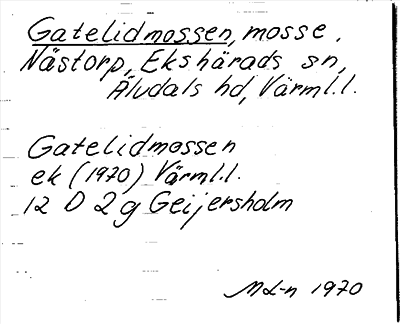 Gatelidmossen, mosse,
Nästorp, Ekshärads sn,
Äludals hd, Värml.l.
Gatelidmossen
ek (1970) Värml.l.
12 D 2g Geijersholm
1970